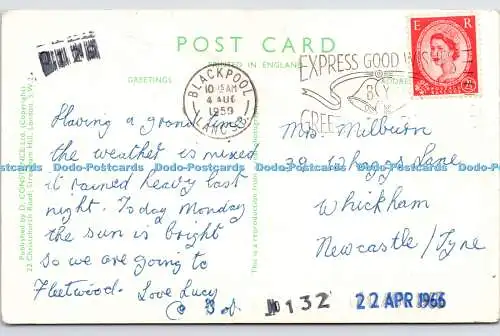 POST CARD
PRINTED IN ENGLAND
GREETINGS
E R
EXPRESS GOOD
BY
GREE
BLACKPOOL
10 AM
4 AUG
1959
LANCS.
Published by D. CONSTANCE Ltd. (Copyright)
22 Christchurch Road, Streatham Hill, London, S.W.2.
This is a reproduction from
Having a grand time
the weather is mixed
it rained heavy last
night. Today Monday
the sun is bright
So we are going to
Fleetwood. Love Lucy
Mrs Milburn
39 Whaggs Lane
Whickham
Newcastle/Tyne
Dodo-Postcards Dodo-Postcards Dodo-Postcards Dodo-Postcards Dodo-Postcards Dodo-Postcards
132
22 APR 1966